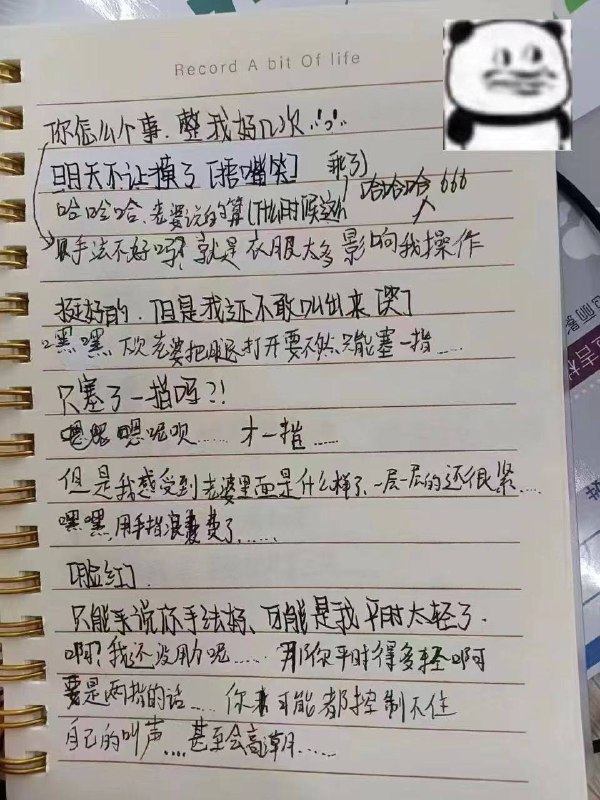 Record A bit Of life
你怎么个事.整我好几次
明天不让摸了[捂嘴笑] 乖了)
哈哈哈.老婆说的算[什么时候 哈哈哈 666
手法不好吗?就是衣服太多影响我操作
挺好的.但是我还不敢叫出来[哭]
嘿嘿,下次老婆把腿打开要不然只能塞一指……
只塞了一指吗?!
嗯嗯嗯呢呗…… 才一指……
但是我感受到老婆里面是什么样了、一层一层的还很紧……
嘿嘿,用手指浪费了……
[脸红]
只能来说你手法好、可能是我平时太轻了.
啊?我还没用力呢…… 那你平时得多轻啊
要是两指的话…… 你可能都控制不住
自己的叫声…… 甚至会高潮……